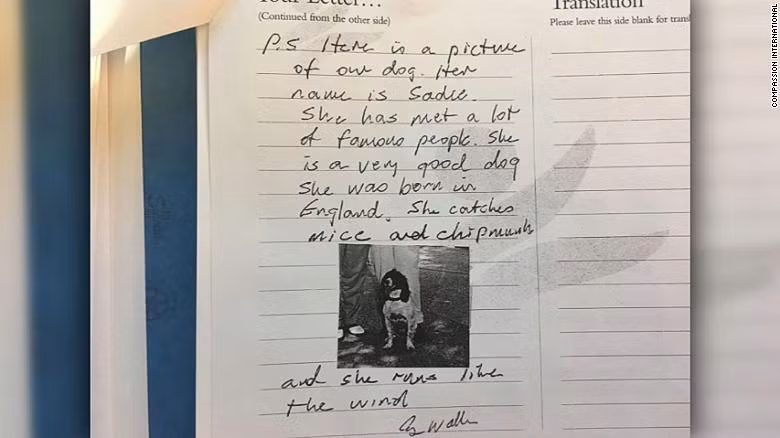 Your Letter...
(Continued from the other side)
Translation
Please leave this side blank for transl
P.S Here is a picture
of our dog. Her
name is Sadie.
She has met a lot
of famous people. She
is a very good dog
She was born in
England. She catches
mice and chipmunks
and she runs like
the wind
G Walker
COMPASSION INTERNATIONAL